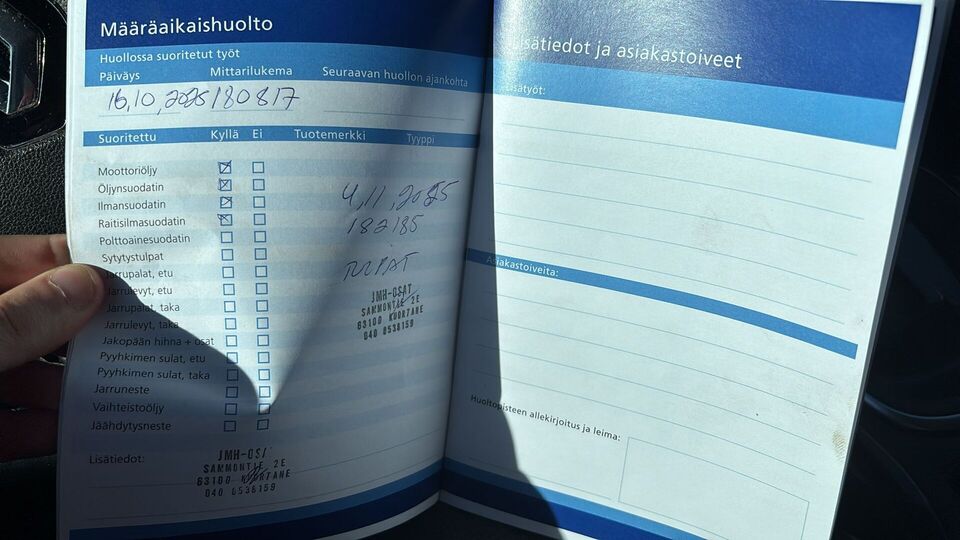 Määräaikaishuolto
Huollossa suoritetut työt
Päiväys Mittarilukema Seuraavan huollon ajankohta
16.10.2025 180817
Suoritettu Kyllä Ei Tuotemerkki Tyyppi
Moottoriöljy
Öljynsuodatin
Ilmansuodatin
Raitisilmasuodatin
Polttoainesuodatin
Sytytystulpat
Jarrupalat, etu
Jarrulevyt, etu
Jarrupalat, taka
Jarrulevyt, taka
Jakopään hihna + osat
Pyyhkimen sulat, etu
Pyyhkimen sulat, taka
Jarruneste
Vaihteistoöljy
Jäähdytysneste
4.11.2025
182185
TULPAT
JMH-OSAT
SAMMONTIE 2E
63100 KUORTANE
040 0536159
Lisätiedot:
JMH-OSAT
SAMMONTIE 2E
63100 KUORTANE
040 0536159
Lisätiedot ja asiakastoiveet
Lisätyöt:
Asiakastoiveita:
Huoltopisteen allekirjoitus ja leima: